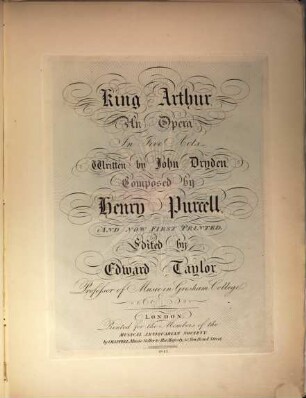 King Arthur
An Opera
In Five Acts
Written by John Dryden
Composed by
Henry Purcell
AND NOW FIRST PRINTED.
Edited by
Edward Taylor
Professor of Music in Gresham College
LONDON.
Printed for the Members of the
MUSICAL ANTIQUARIAN SOCIETY
by CHAPPELL, Music Seller to Her Majesty, 50 New Bond Street